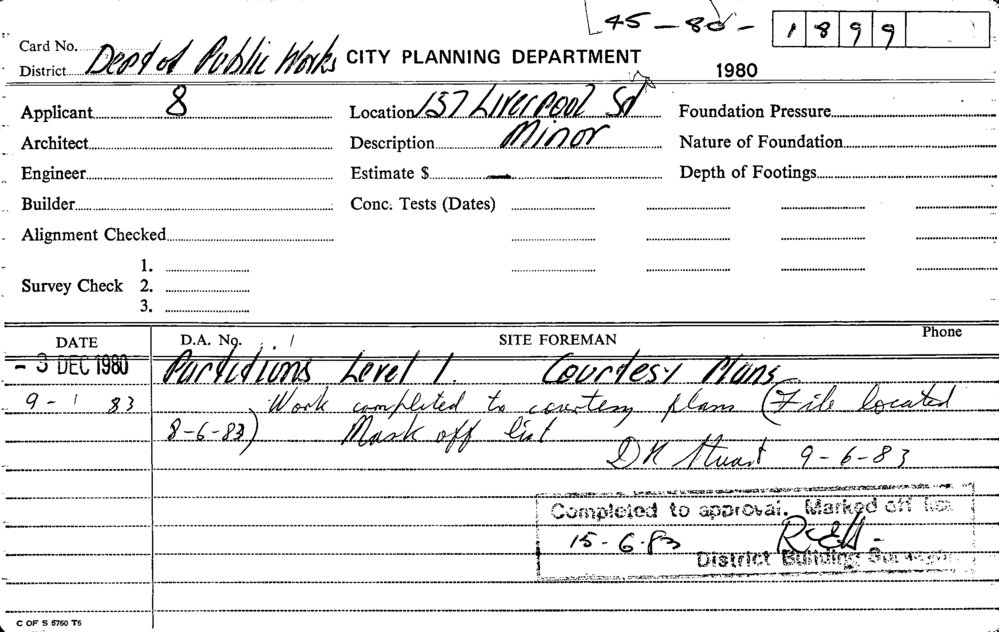 45-80- 1899
Card No. Dept of Public Works CITY PLANNING DEPARTMENT
District 1980
Applicant 8 Location 137 Liverpool St Foundation Pressure
Architect Description Minor Nature of Foundation
Engineer Estimate $ - Depth of Footings
Builder Conc. Tests (Dates)
Alignment Checked
1.
Survey Check 2.
3.
DATE D.A. No. SITE FOREMAN Phone
- 3 DEC 1980 Partitions Level 1. Courtesy Plans
9-1 83 Work completed to courtesy plans (File located
8-6-83) Mark off list
D N Stuart 9-6-83
Completed to approval. Marked off
15-6-83
District Building Surveyor
C OF S 5760 T6